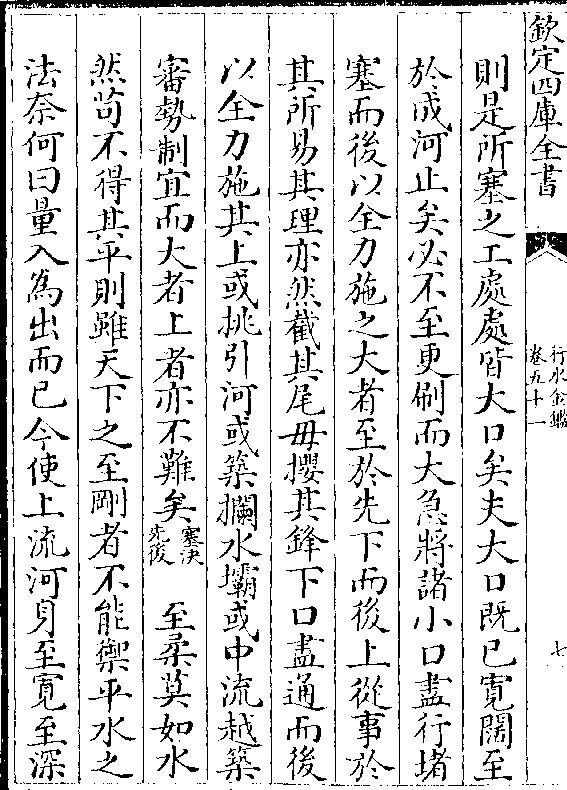 欽定四庫全書
行水金鑑
卷五十一
七
則是所塞之工處處皆大口矣夫大口既已寛闊至
於成河止矣必不至更刷而大急將諸小口盡行堵
塞而後以全力施之大者至於先下而後上從事於
其所易其理亦然截其尾毋攖其鋒下口盡通而後
以全力施其上或挑引河或築攔水壩或中流越築
審勢制宜而大者上者亦不難矣塞決先後 至柔莫如水
然茍不得其平則雖天下之至剛者不能禦平水之
法奈何曰量入為出而已今使上流河身至寛至深